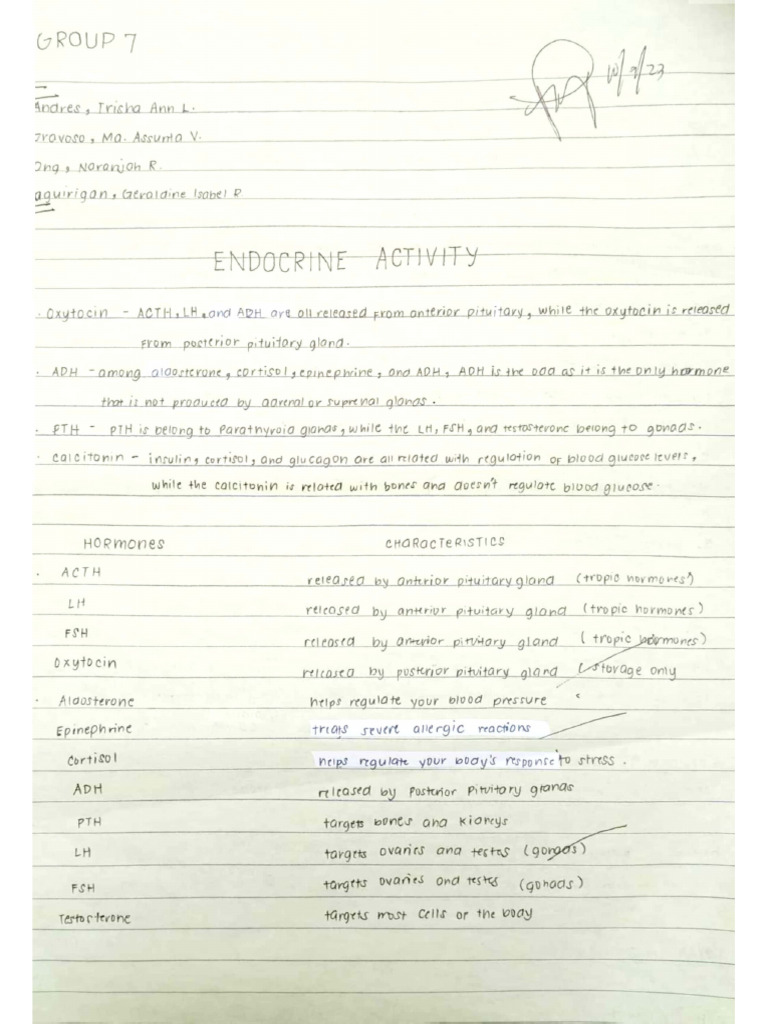 GROUP 7
10/9/23
Andres, Trisha Ann L.
Bravoso, Ma. Assunta V.
Ong, Noranjoh R.
aquirigan, Geraldine Isabel R.
ENDOCRINE ACTIVITY
· Oxytocin - ACTH, LH, and ADH are all released from anterior pituitary, while the oxytocin is released
from posterior pituitary gland.
· ADH - among aldosterone, cortisol, epinephrine, and ADH, ADH is the odd as it is the only hormone
that is not produced by adrenal or suprenal glands.
· PTH - PTH is belong to Parathyroid glands, while the LH, FSH, and testosterone belong to gonads.
· Calcitonin - insulin, cortisol, and glucagon are all related with regulation of blood glucose levers,
while the calcitonin is related with bones and doesn't regulate blood glucose.
HORMONES CHARACTERISTICS
· ACTH released by anterior pituitary gland (tropic hormones)
LH released by anterior pituitary gland (tropic hormones)
FSH released by anterior pituitary gland (tropic hormones)
Oxytocin released by posterior pituitary gland (storage only
· Aldosterone helps regulate your blood pressure
Epinephrine treats severe allergic reactions
Cortisol helps regulate your body's response to stress.
ADH released by Posterior Pituitary glands
PTH targets bones and kidneys
LH targets ovaries and testes (gonads)
FSH targets ovaries and testes (gonads)
Testosterone targets most cells of the body